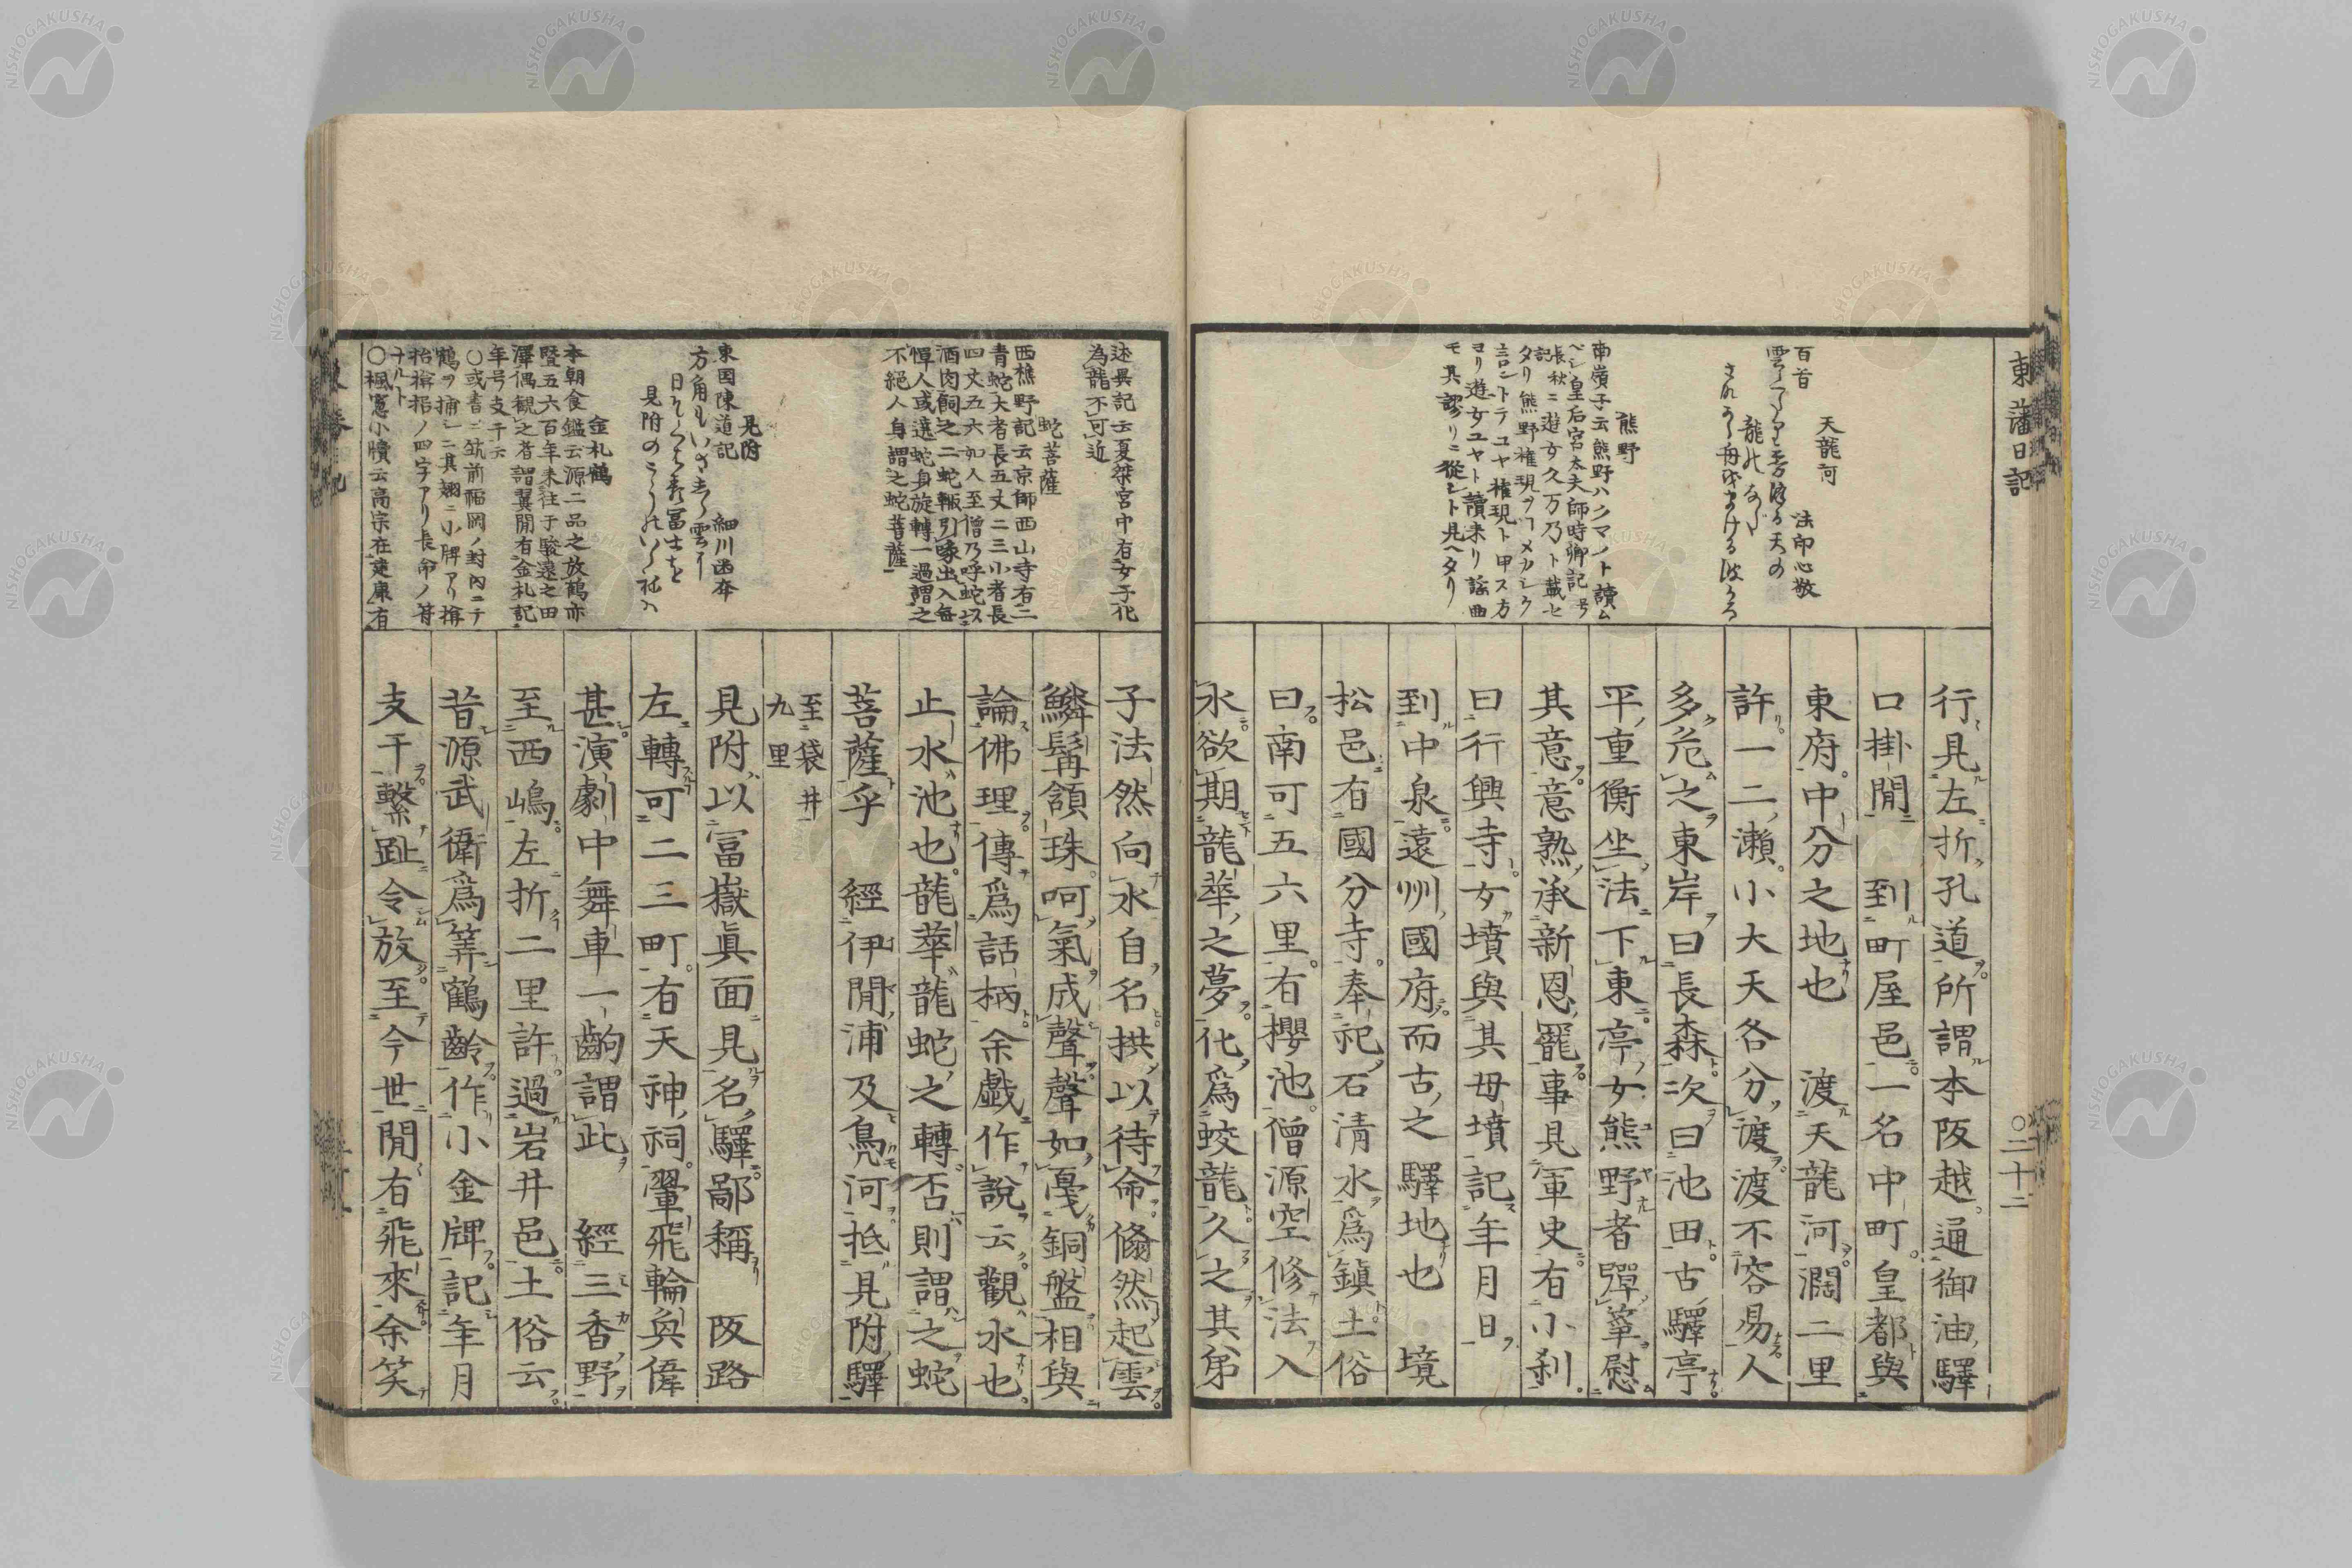 東藩日記
○二十二
天龍河
百首
法印心敬
熊野
南嶺子云熊野ハクマノト讀ム
ベシ皇后宮太夫師時卿記号
長秋記ニ遊女久万乃ト載セ
タリ熊野権現ヲコメカシク
言ントテユヤ権現ト申ス方
ヨリ遊女ユヤト讀来リ謡曲
モ其謬リニ從シト見ヘタリ
行見左折孔道所謂本阪越通御油驛
口掛間 到町屋邑一名中町皇都與
東府中分之地也 渡天龍河濶二里
許一二瀬小大天各分渡渡不容易人
多危之東岸曰長森次曰池田古驛亭
平重衡坐法下東亭女熊野者彈箏慰
其意意熟承新恩罷事見軍史有小刹
曰行興寺女墳與其母墳記年月日
到中泉遠州國府而古之驛地也 境
松邑有國分寺奉祀石清水爲鎮土俗
曰南可五六里有櫻池僧源空修法入
水欲期龍華之夢化爲蛟龍久之其弟
述異記云夏桀宮中有女子化
為龍不可近
蛇菩薩
西樵野記云京師西山寺有二
青蛇大者長五丈二三小者長
四丈五六如人至僧乃呼蛇以
酒肉飼之二蛇輙引喙出入毎
憚人或遶蛇身旋轉一過謂之
不絕人身謂之蛇菩薩
見附
東国陳道記 細川幽斎
金札鶴
本朝食鑑云源二品之放鶴亦
曁五六百年来往于駿遠之田
澤偶観之者謂翼間有金札記
年号支干云
○或書ニ筑前福岡ノ封内ニテ
鶴ヲ捕シニ其翅ニ小牌アリ
ナルト
○楓窓小牘云高宗在建康有
子法然向水自名拱以待命翛然起雲
鱗髯頷珠呵氣成聲聲如戞銅盤相與
論佛理傳爲話柄余戯作說云觀水也
止水池也龍華龍蛇之轉否則謂之蛇
菩薩乎 經伊間浦及鳧河抵見附驛
至袋井
九里
見附以冨嶽眞面見名驛鄙稱 阪路
左轉可二三町有天神祠翬飛輪奐偉
甚演劇中舞車一齣謂此 經三香野
至西嶋左折二里許過岩井邑土俗云
昔源武衛爲筭鶴齡作小金牌記年月
支干繋趾令放至今世間有飛來余笑